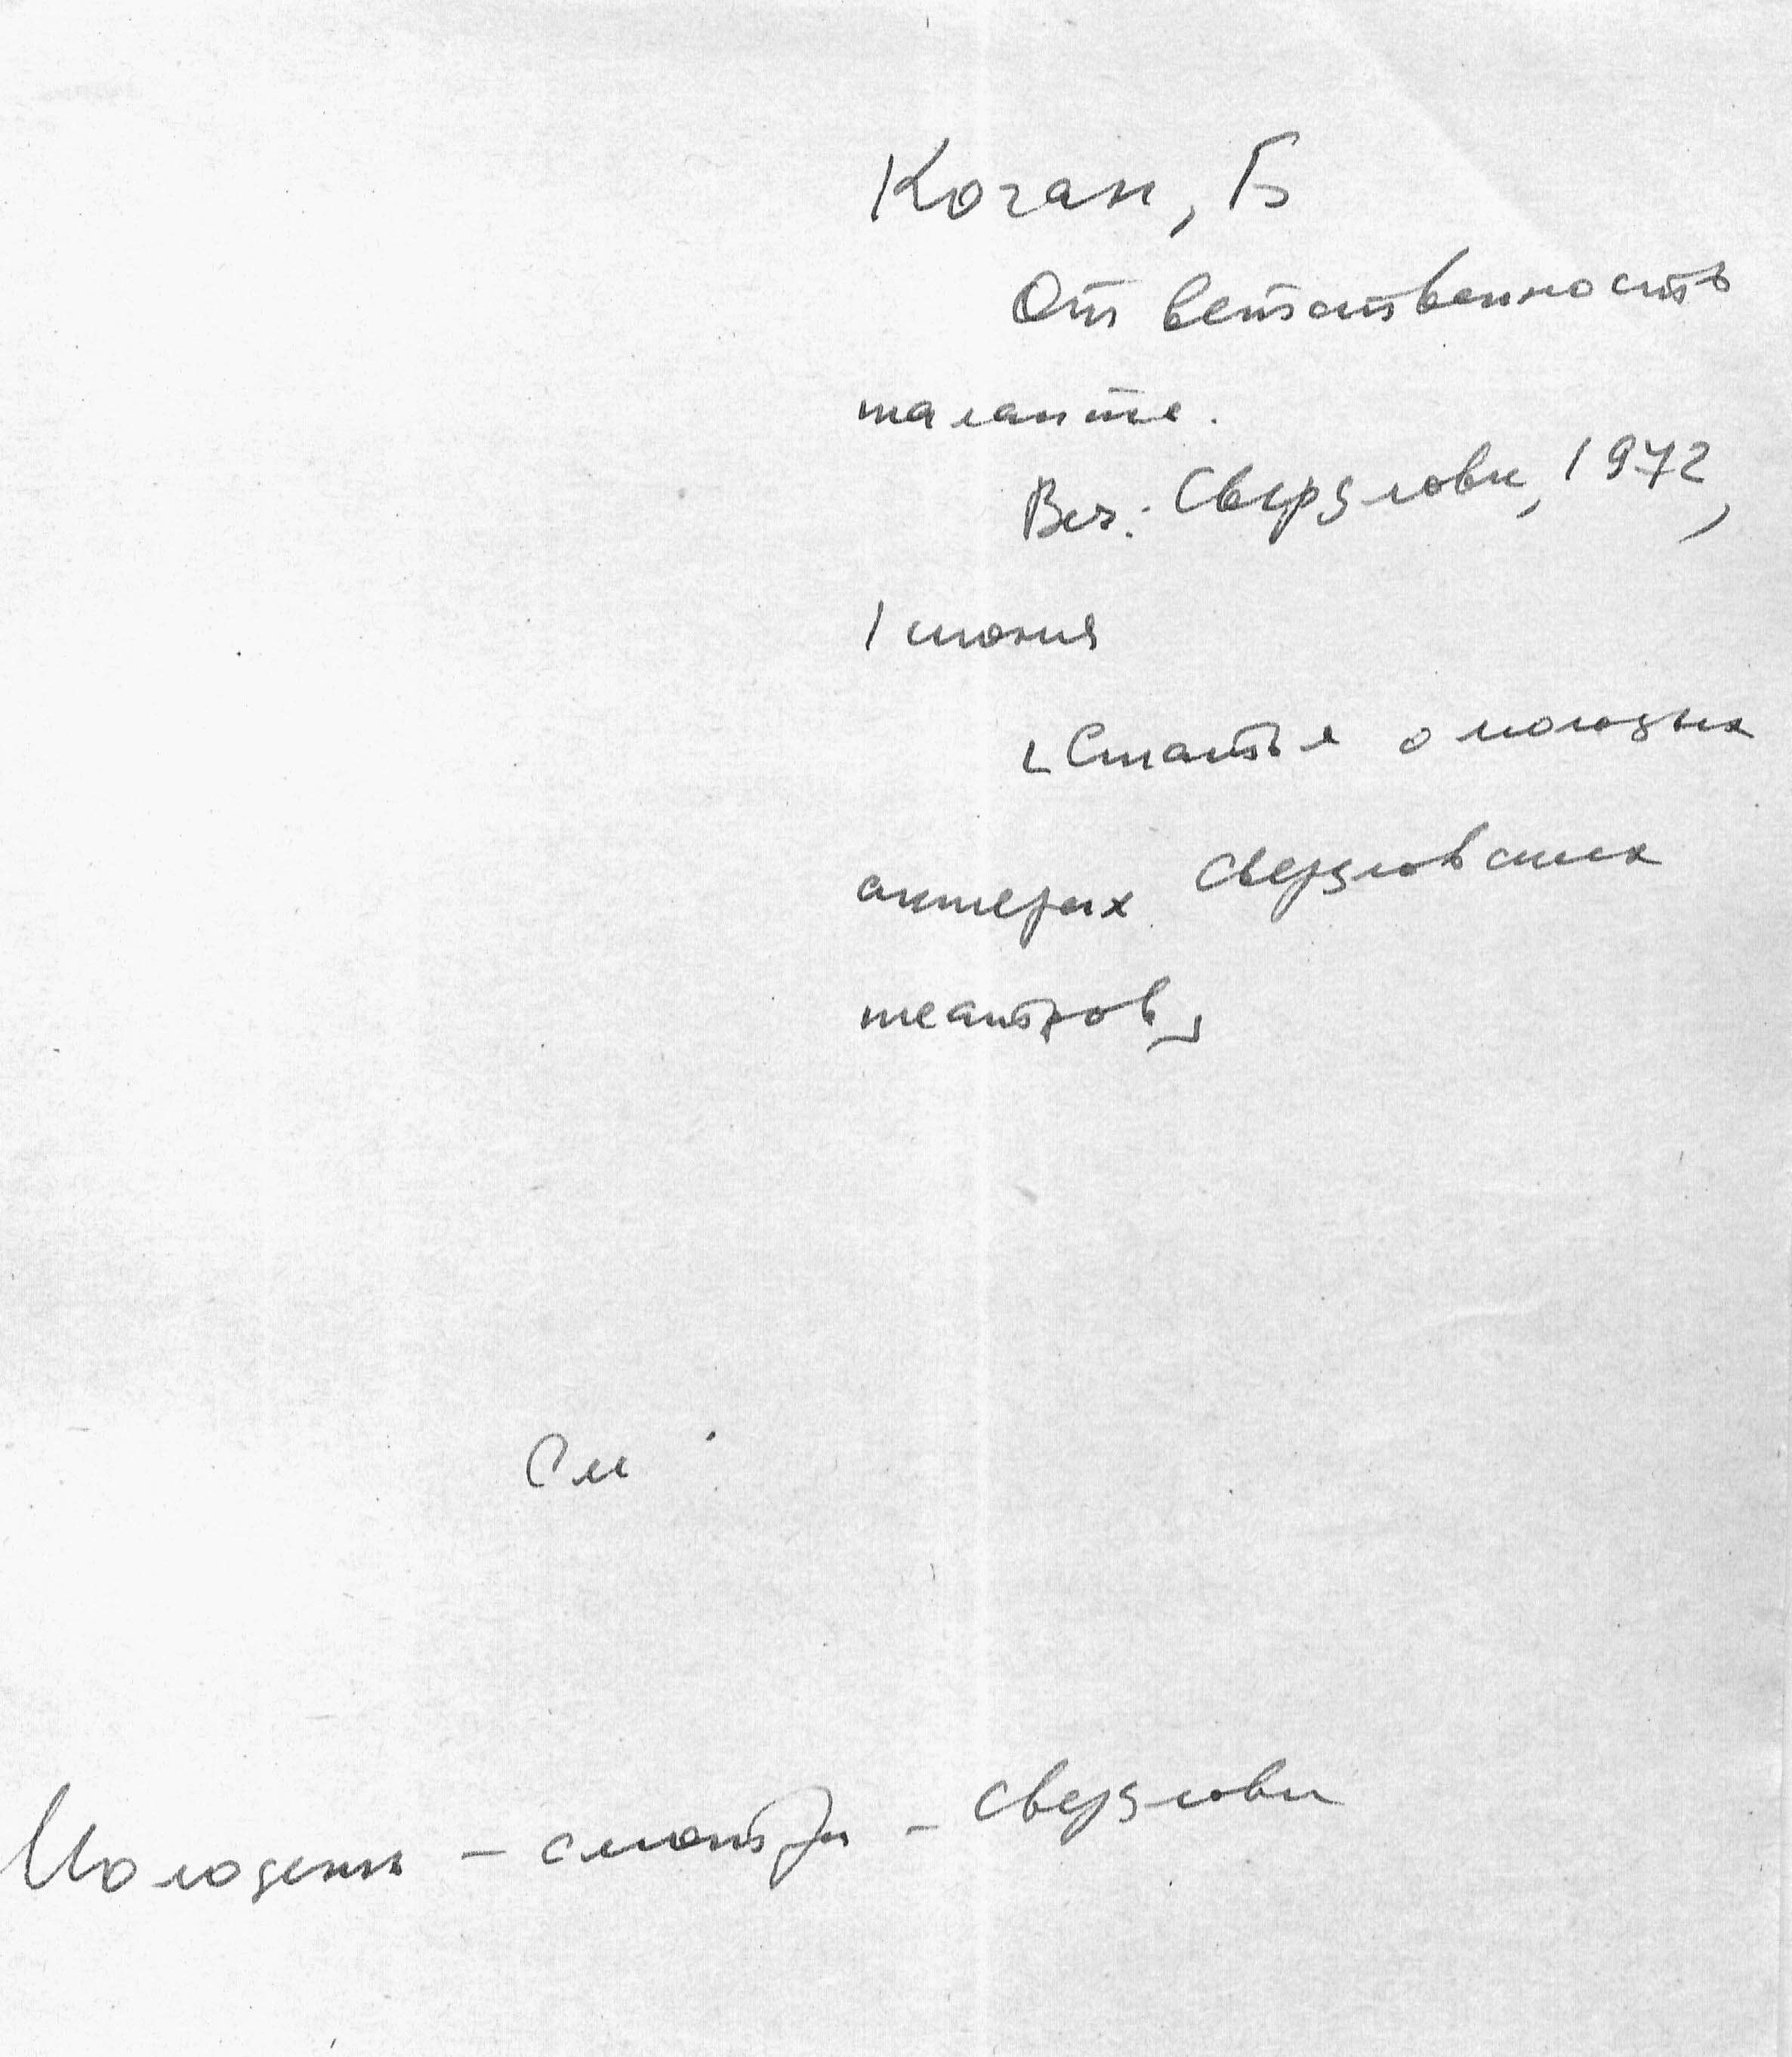 Коган, Б
Ответственность
таланте.
Веч. Свердловск, 1972,
1 июня
[Статья о молодых
актерах свердловских
театров]
См
Молодежь - смотры - Свердловск